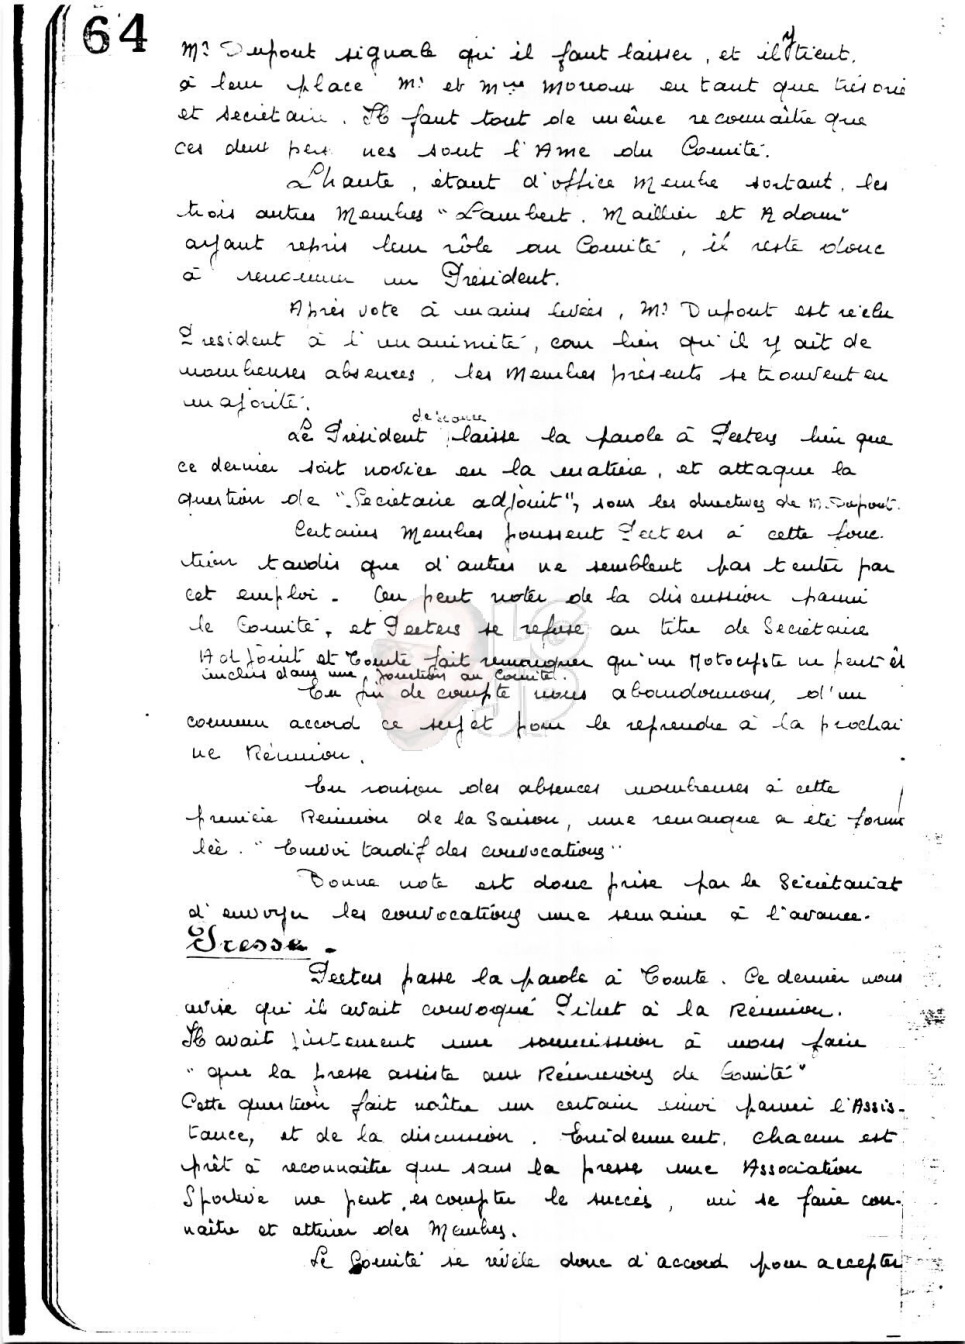 64
Mr Dupont signale qu'il faut laisser, et il y tient,
à leur place Mr et Mme Moreau en tant que trésorié
et secrétaire. Il faut tout de même reconnaître que
ces deux per nes sont l'Ame du Comité.
Lhante, étant d'office Membre sortant, les
trois autres Membres "Lambert, Maillier et Adam"
ayant repris leur rôle au Comité, il reste donc
à renommer un Président.
Après vote à mains levées, Mr Dupont est réélu
Président à l'unanimité, car bien qu'il y ait de
nombreuses absences, les Membres présents se trouvent en
majorité.
de séance
Le Président laisse la parole à Peeters bien que
ce dernier soit novice en la matière, et attaque la
question de "Secrétaire adjoint", sous les directives de M. Dupont.
Certains Membres poussent Peeters à cette fonc-
tion tandis que d'autres ne semblent pas tenter par
cet emploi. On peut noter de la discussion parmi
le Comité, et Peeters se refuse au titre de Secrétaire
Adjoint et Comte fait remarquer qu'un Motocyste ne peut êt
inclus dans une fonction au Comité.
En fin de compte nous abandonnons, d'un
commun accord ce sujet pour le reprendre à la prochai
ne Réunion.
En raison des absences nombreuses à cette
première Réunion de la Saison, une remarque a été formu
lée. "Envoi tardif des convocations"
Bonne note est donc prise par le Sécrétariat
d'envoyer les convocations une semaine à l'avance.
Presse.
Peeters passe la parole à Comte. Ce dernier nous
avise qu'il avait convoqué Pihet à la Réunion.
Il avait justement une soumission à nous faire
"que la presse assiste aux Réunions de Comité"
Cette question fait naître un certain émoi parmi l'Assis-
tance, et de la discussion. Evidemment, chacun est
prêt à reconnaître que sans la presse une Association
Sportive ne peut escompter le succès, ni se faire con-
naître et attirer des Membres.
Le Comité se révèle donc d'accord pour accepter